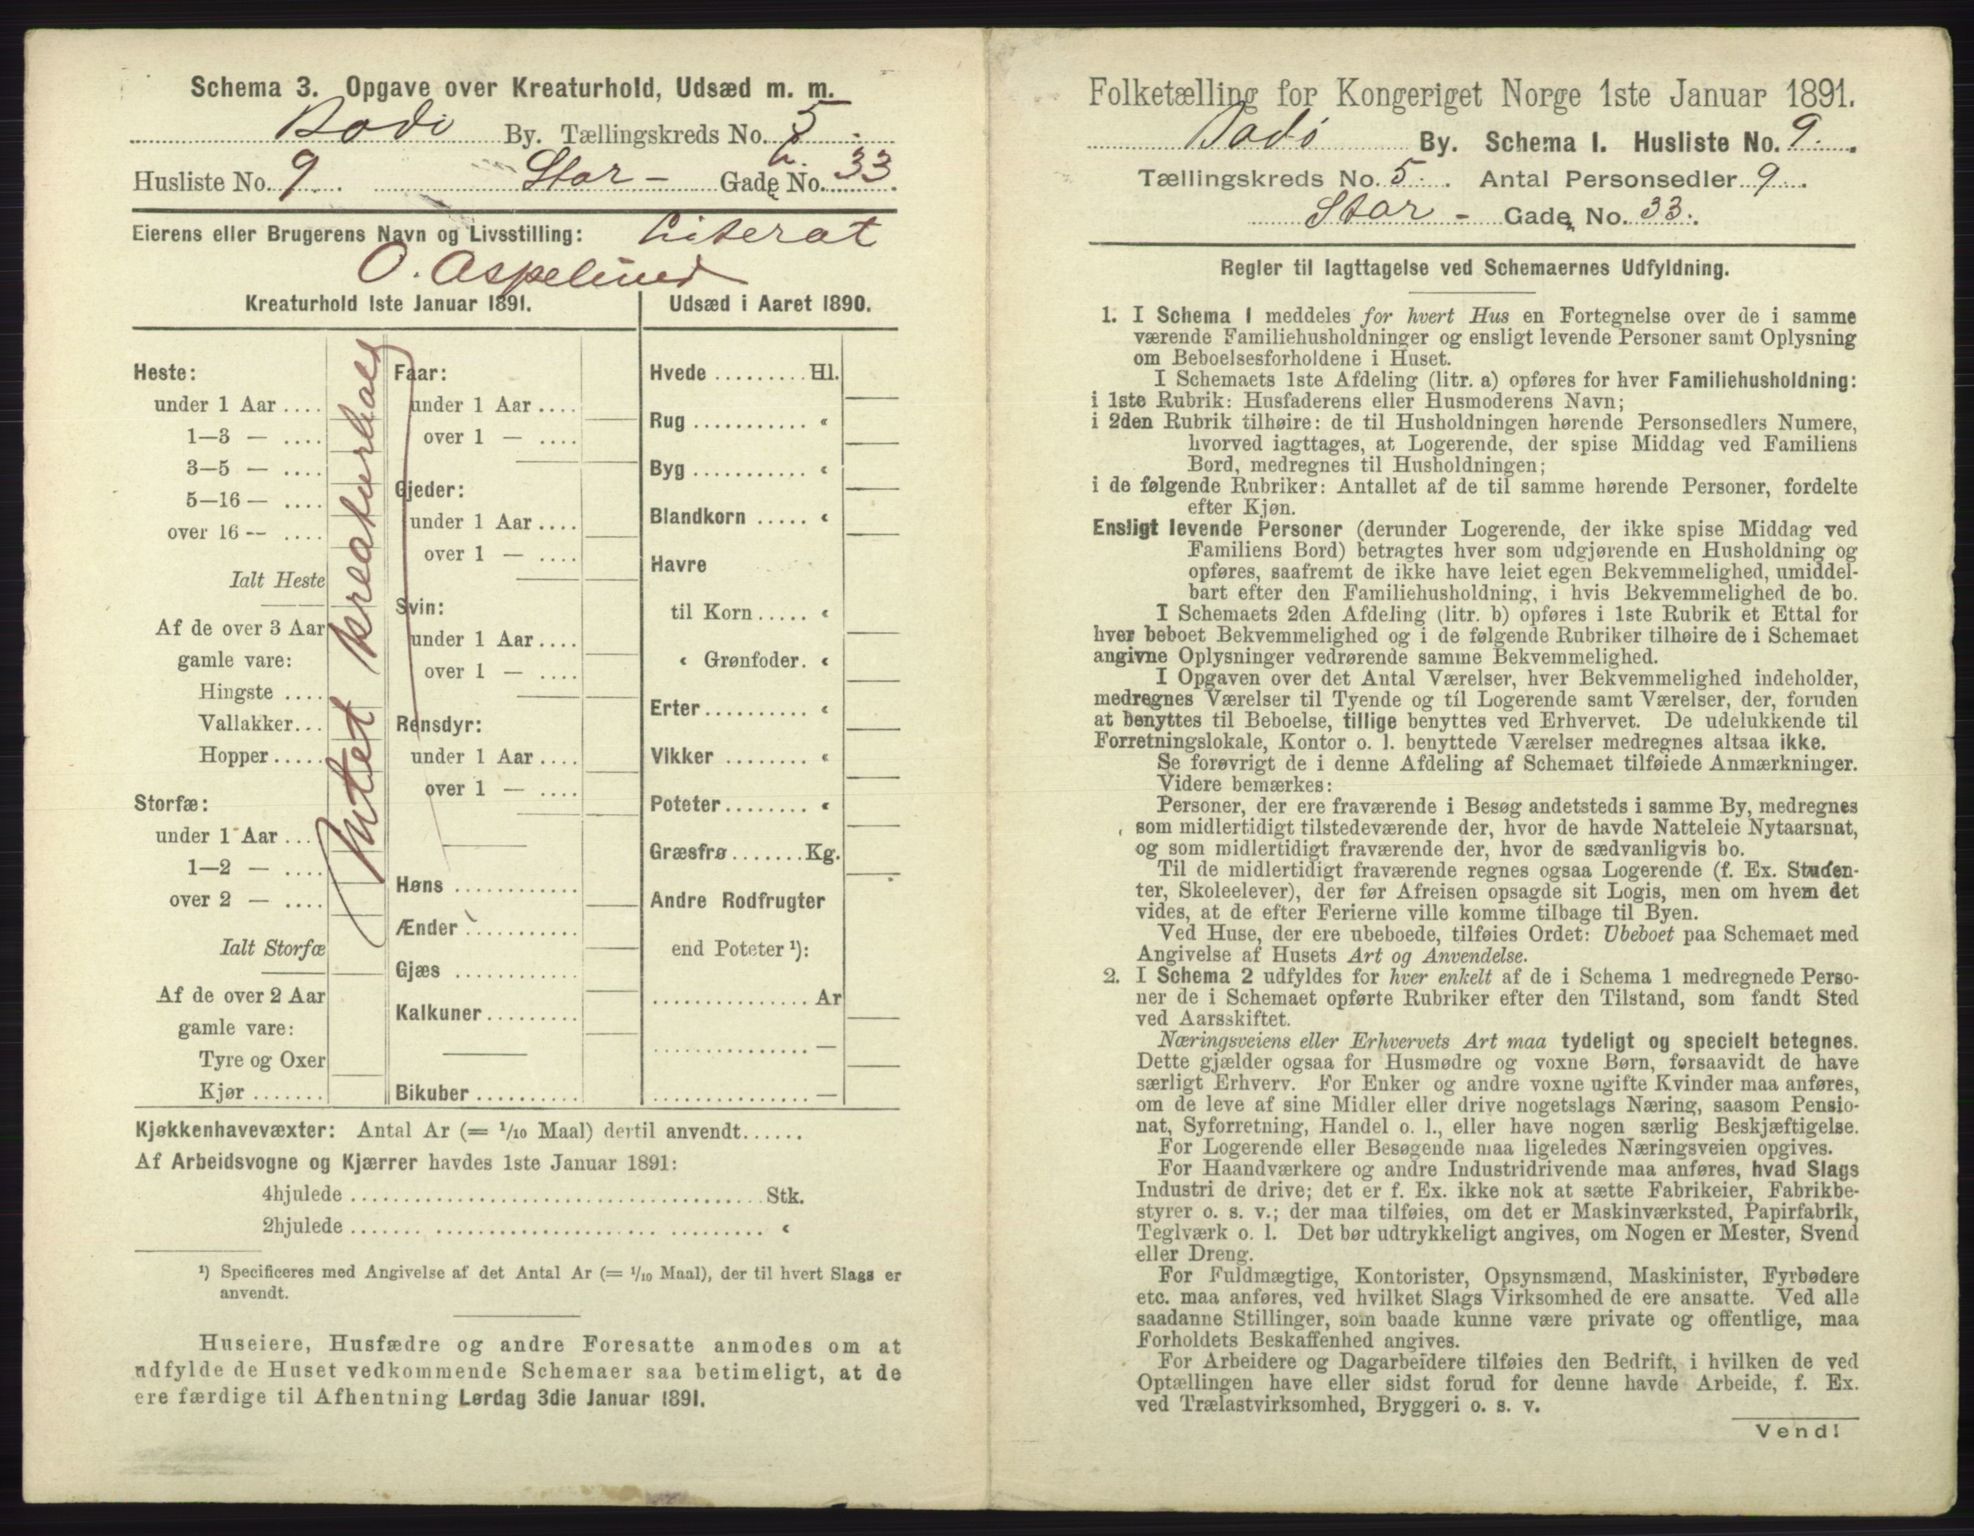 Schema 3. Opgave over Kreaturhold, Udsæd m. m.
Bodø By. Tællingskreds No. 5.
Husliste No. 9 Stor- Gade No. 33.
Eierens eller Brugerens Navn og Livsstilling: Literat
O. Aspelund
Kreaturhold 1ste Januar 1891.
Heste:
under 1 Aar ....
1—3 — ....
3—5 — ....
5—16 — ....
over 16 — ....
Ialt Heste
Af de over 3 Aar
gamle vare:
Hingste ....
Vallakker...
Hopper.....
Storfæ:
under 1 Aar ...
1—2 — ....
over 2 — ....
Ialt Storfæ
Af de over 2 Aar
gamle vare:
Tyre og Oxer
Kjør .......
Intet Kreaturhold
Faar:
under 1 Aar ....
over 1 — ....
Gjeder:
under 1 Aar ....
over 1 — ....
Svin:
under 1 Aar ....
over 1 — ....
Rensdyr:
under 1 Aar ....
over 1 — ....
Høns ............
Ænder ...........
Gjæs ............
Kalkuner.........
Bikuber ..........
Udsæd i Aaret 1890.
Hvede ......... Hl.
Rug ........... «
Byg ........... «
Blandkorn ..... «
Havre
til Korn ..... «
« Grønfoder. «
Erter.......... «
Vikker ........ «
Poteter........ «
Græsfrø.......Kg.
Andre Rodfrugter
end Poteter ¹):
............... Ar
............... —
............... —
Kjøkkenhavevæxter: Antal Ar (= 1/10 Maal) dertil anvendt......
Af Arbeidsvogne og Kjærrer havdes 1ste Januar 1891:
4hjulede ...................................... Stk.
2hjulede ...................................... «
¹) Specificeres med Angivelse af det Antal Ar (= 1/10 Maal), der til hvert Slags er
anvendt.
Huseiere, Husfædre og andre Foresatte anmodes om at
udfylde de Huset vedkommende Schemaer saa betimeligt, at de
ere færdige til Afhentning Lørdag 3die Januar 1891.
Folketælling for Kongeriget Norge 1ste Januar 1891.
Bodø By. Schema I. Husliste No. 9.
Tællingskreds No. 5. Antal Personsedler 9.
Stor- Gade No. 33.
Regler til Iagttagelse ved Schemaernes Udfyldning.
1. I Schema 1 meddeles for hvert Hus en Fortegnelse over de i samme
værende Familiehusholdninger og ensligt levende Personer samt Oplysning
om Beboelsesforholdene i Huset.
I Schemaets 1ste Afdeling (litr. a) opføres for hver Familiehusholdning:
i 1ste Rubrik: Husfaderens eller Husmoderens Navn;
i 2den Rubrik tilhøire: de til Husholdningen hørende Personsedlers Numere,
hvorved iagttages, at Logerende, der spise Middag ved Familiens
Bord, medregnes til Husholdningen;
i de følgende Rubriker: Antallet af de til samme hørende Personer, fordelte
efter Kjøn.
Ensligt levende Personer (derunder Logerende, der ikke spise Middag ved
Familiens Bord) betragtes hver som udgjørende en Husholdning og
opføres, saafremt de ikke have leiet egen Bekvemmelighed, umiddel-
bart efter den Familiehusholdning, i hvis Bekvemmelighed de bo.
I Schemaets 2den Afdeling (litr. b) opføres i 1ste Rubrik et Ettal for
hver beboet Bekvemmelighed og i de følgende Rubriker tilhøire de i Schemaet
angivne Oplysninger vedrørende samme Bekvemmelighed.
I Opgaven over det Antal Værelser, hver Bekvemmelighed indeholder,
medregnes Værelser til Tyende og til Logerende samt Værelser, der, foruden
at benyttes til Beboelse, tillige benyttes ved Erhvervet. De udelukkende til
Forretningslokale, Kontor o. l. benyttede Værelser medregnes altsaa ikke.
Se forøvrigt de i denne Afdeling af Schemaet tilføiede Anmærkninger.
Videre bemærkes:
Personer, der ere fraværende i Besøg andetsteds i samme By, medregnes
som midlertidigt tilstedeværende der, hvor de havde Natteleie Nytaarsnat,
og som midlertidigt fraværende der, hvor de sædvanligvis bo.
Til de midlertidigt fraværende regnes ogsaa Logerende (f. Ex. Studen-
ter, Skoleelever), der før Afreisen opsagde sit Logis, men om hvem det
vides, at de efter Ferierne ville komme tilbage til Byen.
Ved Huse, der ere ubeboede, tilføies Ordet: Ubeboet paa Schemaet med
Angivelse af Husets Art og Anvendelse.
2. I Schema 2 udfyldes for hver enkelt af de i Schema 1 medregnede Perso-
ner de i Schemaet opførte Rubriker efter den Tilstand, som fandt Sted
ved Aarsskiftet.
Næringsveiens eller Erhvervets Art maa tydeligt og specielt betegnes.
Dette gjælder ogsaa for Husmødre og voxne Børn, forsaavidt de have
særligt Erhverv. For Enker og andre voxne ugifte Kvinder maa anføres,
om de leve af sine Midler eller drive nogetslags Næring, saasom Pensio-
nat, Syforretning, Handel o. l., eller have nogen særlig Beskjæftigelse.
For Logerende eller Besøgende maa ligeledes Næringsveien opgives.
For Haandværkere og andre Industridrivende maa anføres, hvad Slags
Industri de drive; det er f. Ex. ikke nok at sætte Fabrikeier, Fabrikbe-
styrer o. s. v.; der maa tilføies, om det er Maskinværksted, Papirfabrik,
Teglværk o. l. Det bør udtrykkeligt angives, om Nogen er Mester, Svend
eller Dreng.
For Fuldmægtige, Kontorister, Opsynsmænd, Maskinister, Fyrbødere
etc. maa anføres, ved hvilket Slags Virksomhed de ere ansatte. Ved alle
saadanne Stillinger, som baade kunne være private og offentlige, maa
Forholdets Beskaffenhed angives.
For Arbeidere og Dagarbeidere tilføies den Bedrift, i hvilken de ved
Optællingen have eller sidst forud for denne havde Arbeide, f. Ex.
ved Trælastvirksomhed, Bryggeri o. s. v.
Vend!